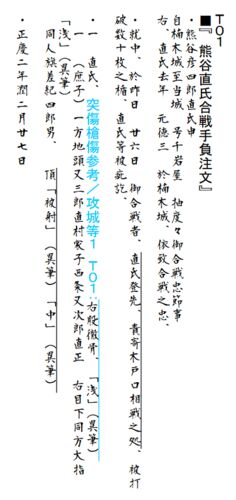 T01
■『熊谷直氏合戦手負注文』
・熊谷彦四郎直氏申
自楠木城至当城、号千岩屋、抽度々御合戦忠節事
右、直氏去年 元徳三 於楠木城、依致合戦之忠、
・就中、於昨日 廿六日 御合戦者、直氏登先、責寄木戸口相戦之処、被打
破数十枚之楯、直氏等被疵訖、
・一 直氏、突傷槍傷参考/攻城等1 T01:右股徹骨、「浅」(異筆)
・一 (庶子)一方地頭又三郎直村家子西条又次郎直正 右目下同方大指
「浅」(異筆)
同人旗差紀四郎男、 頂「被射」(異筆)「中」(異筆)
・正慶二年潤二月廿七日